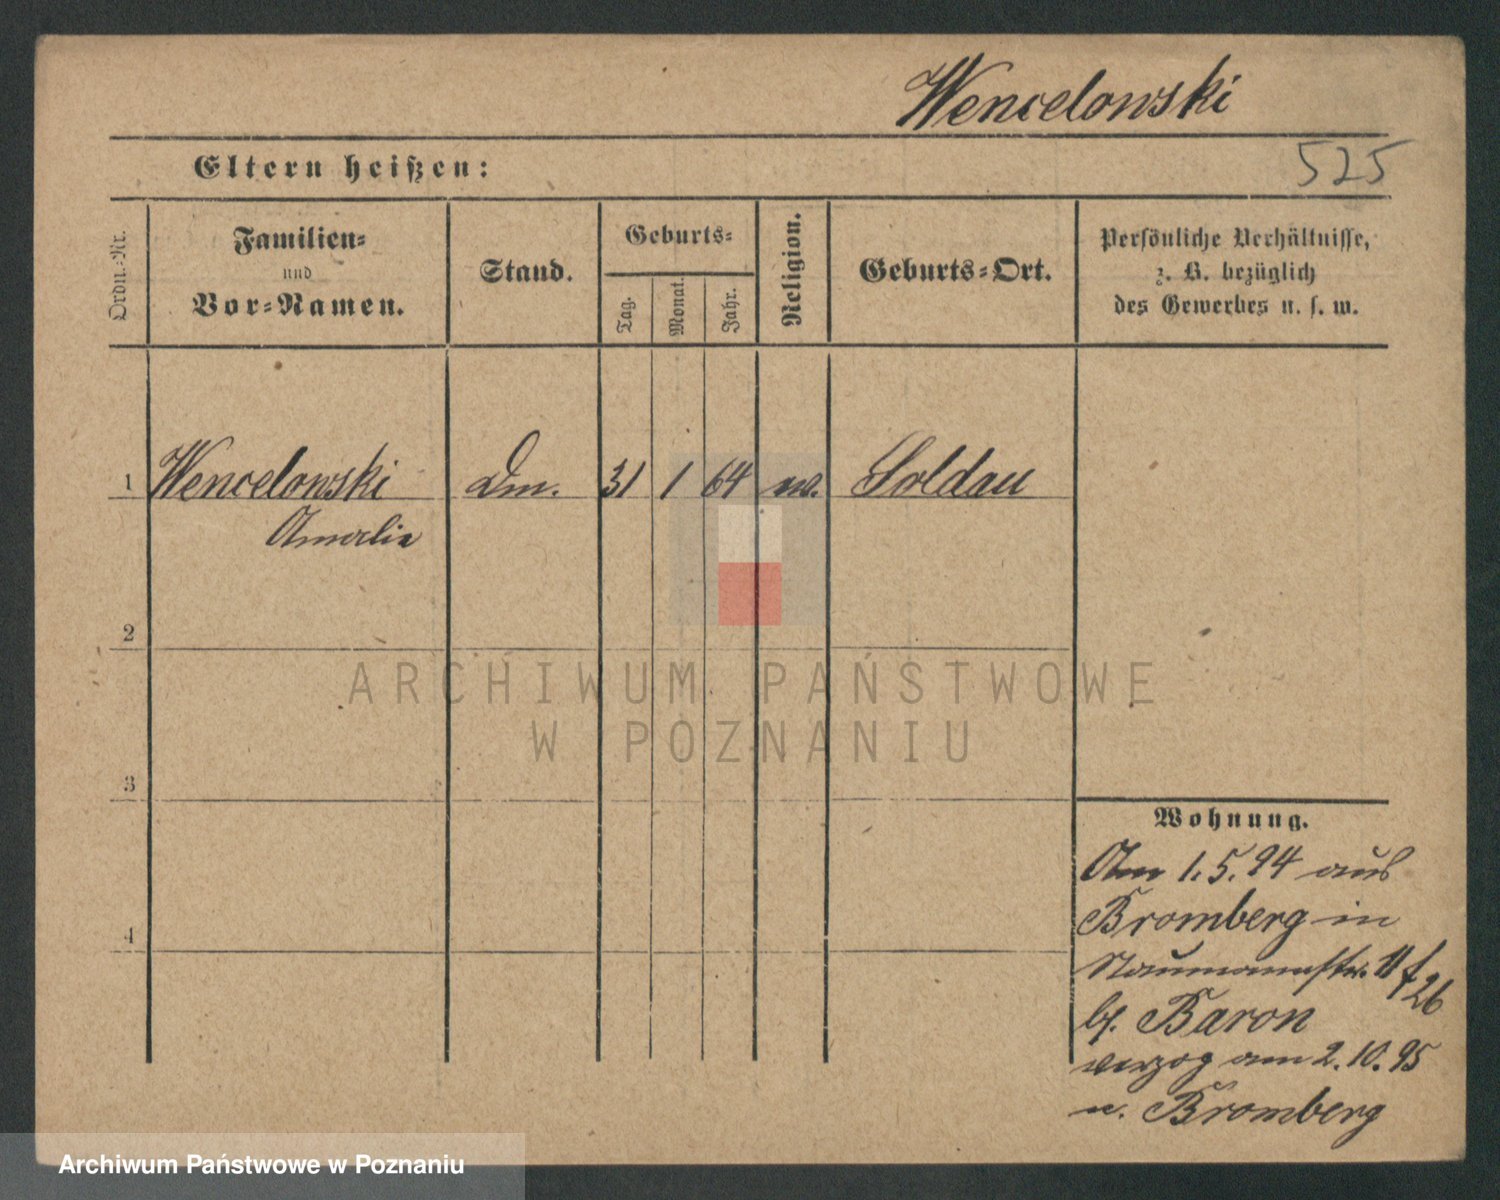 Wencelowski
525
Eltern heißen:
Ordn.-Nr.
Familien-
und
Vor-Namen.
Stand.
Geburts-
Tag.
Monat.
Jahr.
Religion.
Geburts-Ort.
Persönliche Verhältnisse,
z. B. bezüglich
des Gewerbes u. s. w.
1 Wencelowski 31 1 64 Soldau
Amalie
2
3
4
Wohnung.
Am 1.5.94 aus
Bromberg in
Naumannstr. 11
26
bei Baron
verzog am 2.10.95
n. Bromberg
ARCHIWUM PAŃSTWOWE
W POZNANIU
Archiwum Państwowe w Poznaniu